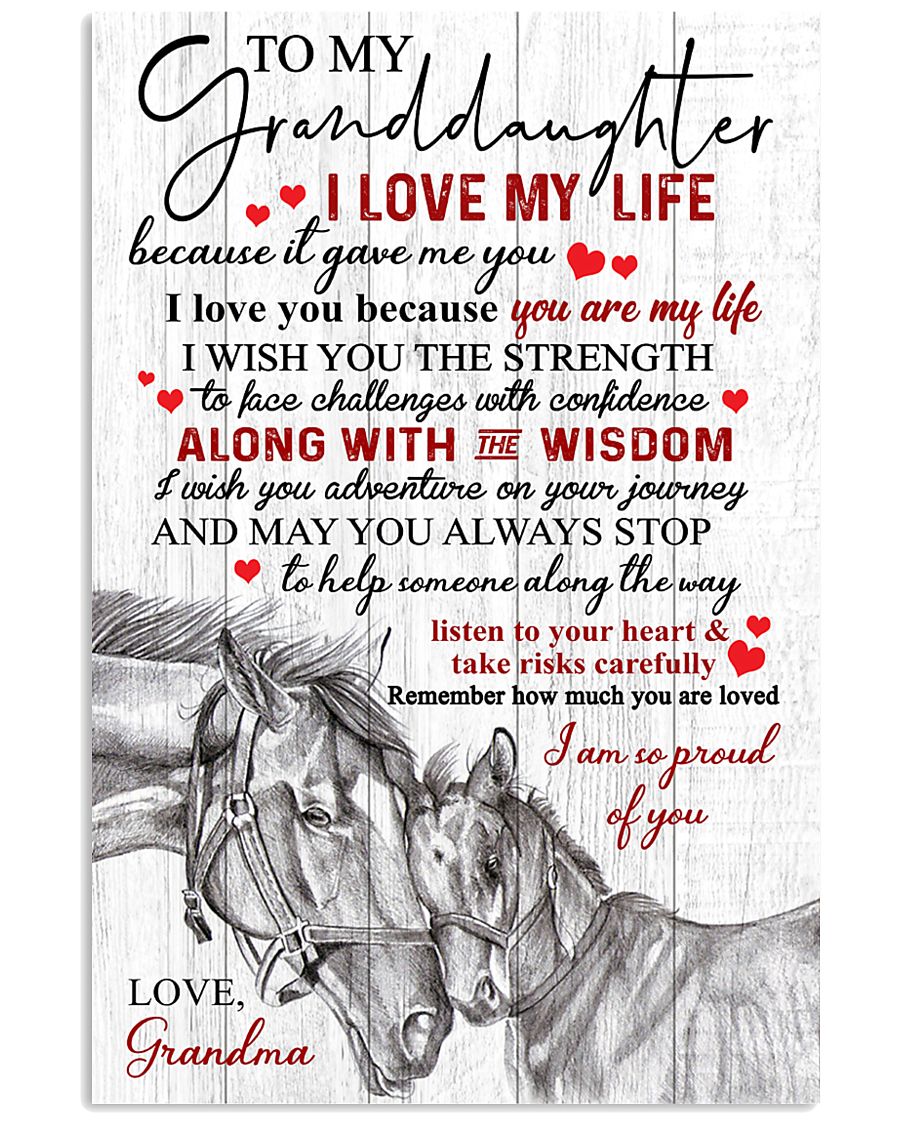 TO MY
Granddaughter
I LOVE MY LIFE
because it gave me you
I love you because you are my life
I WISH YOU THE STRENGTH
to face challenges with confidence
ALONG WITH THE WISDOM
I wish you adventure on your journey
AND MAY YOU ALWAYS STOP
to help someone along the way
listen to your heart &
take risks carefully
Remember how much you are loved
I am so proud
of you
LOVE,
Grandma